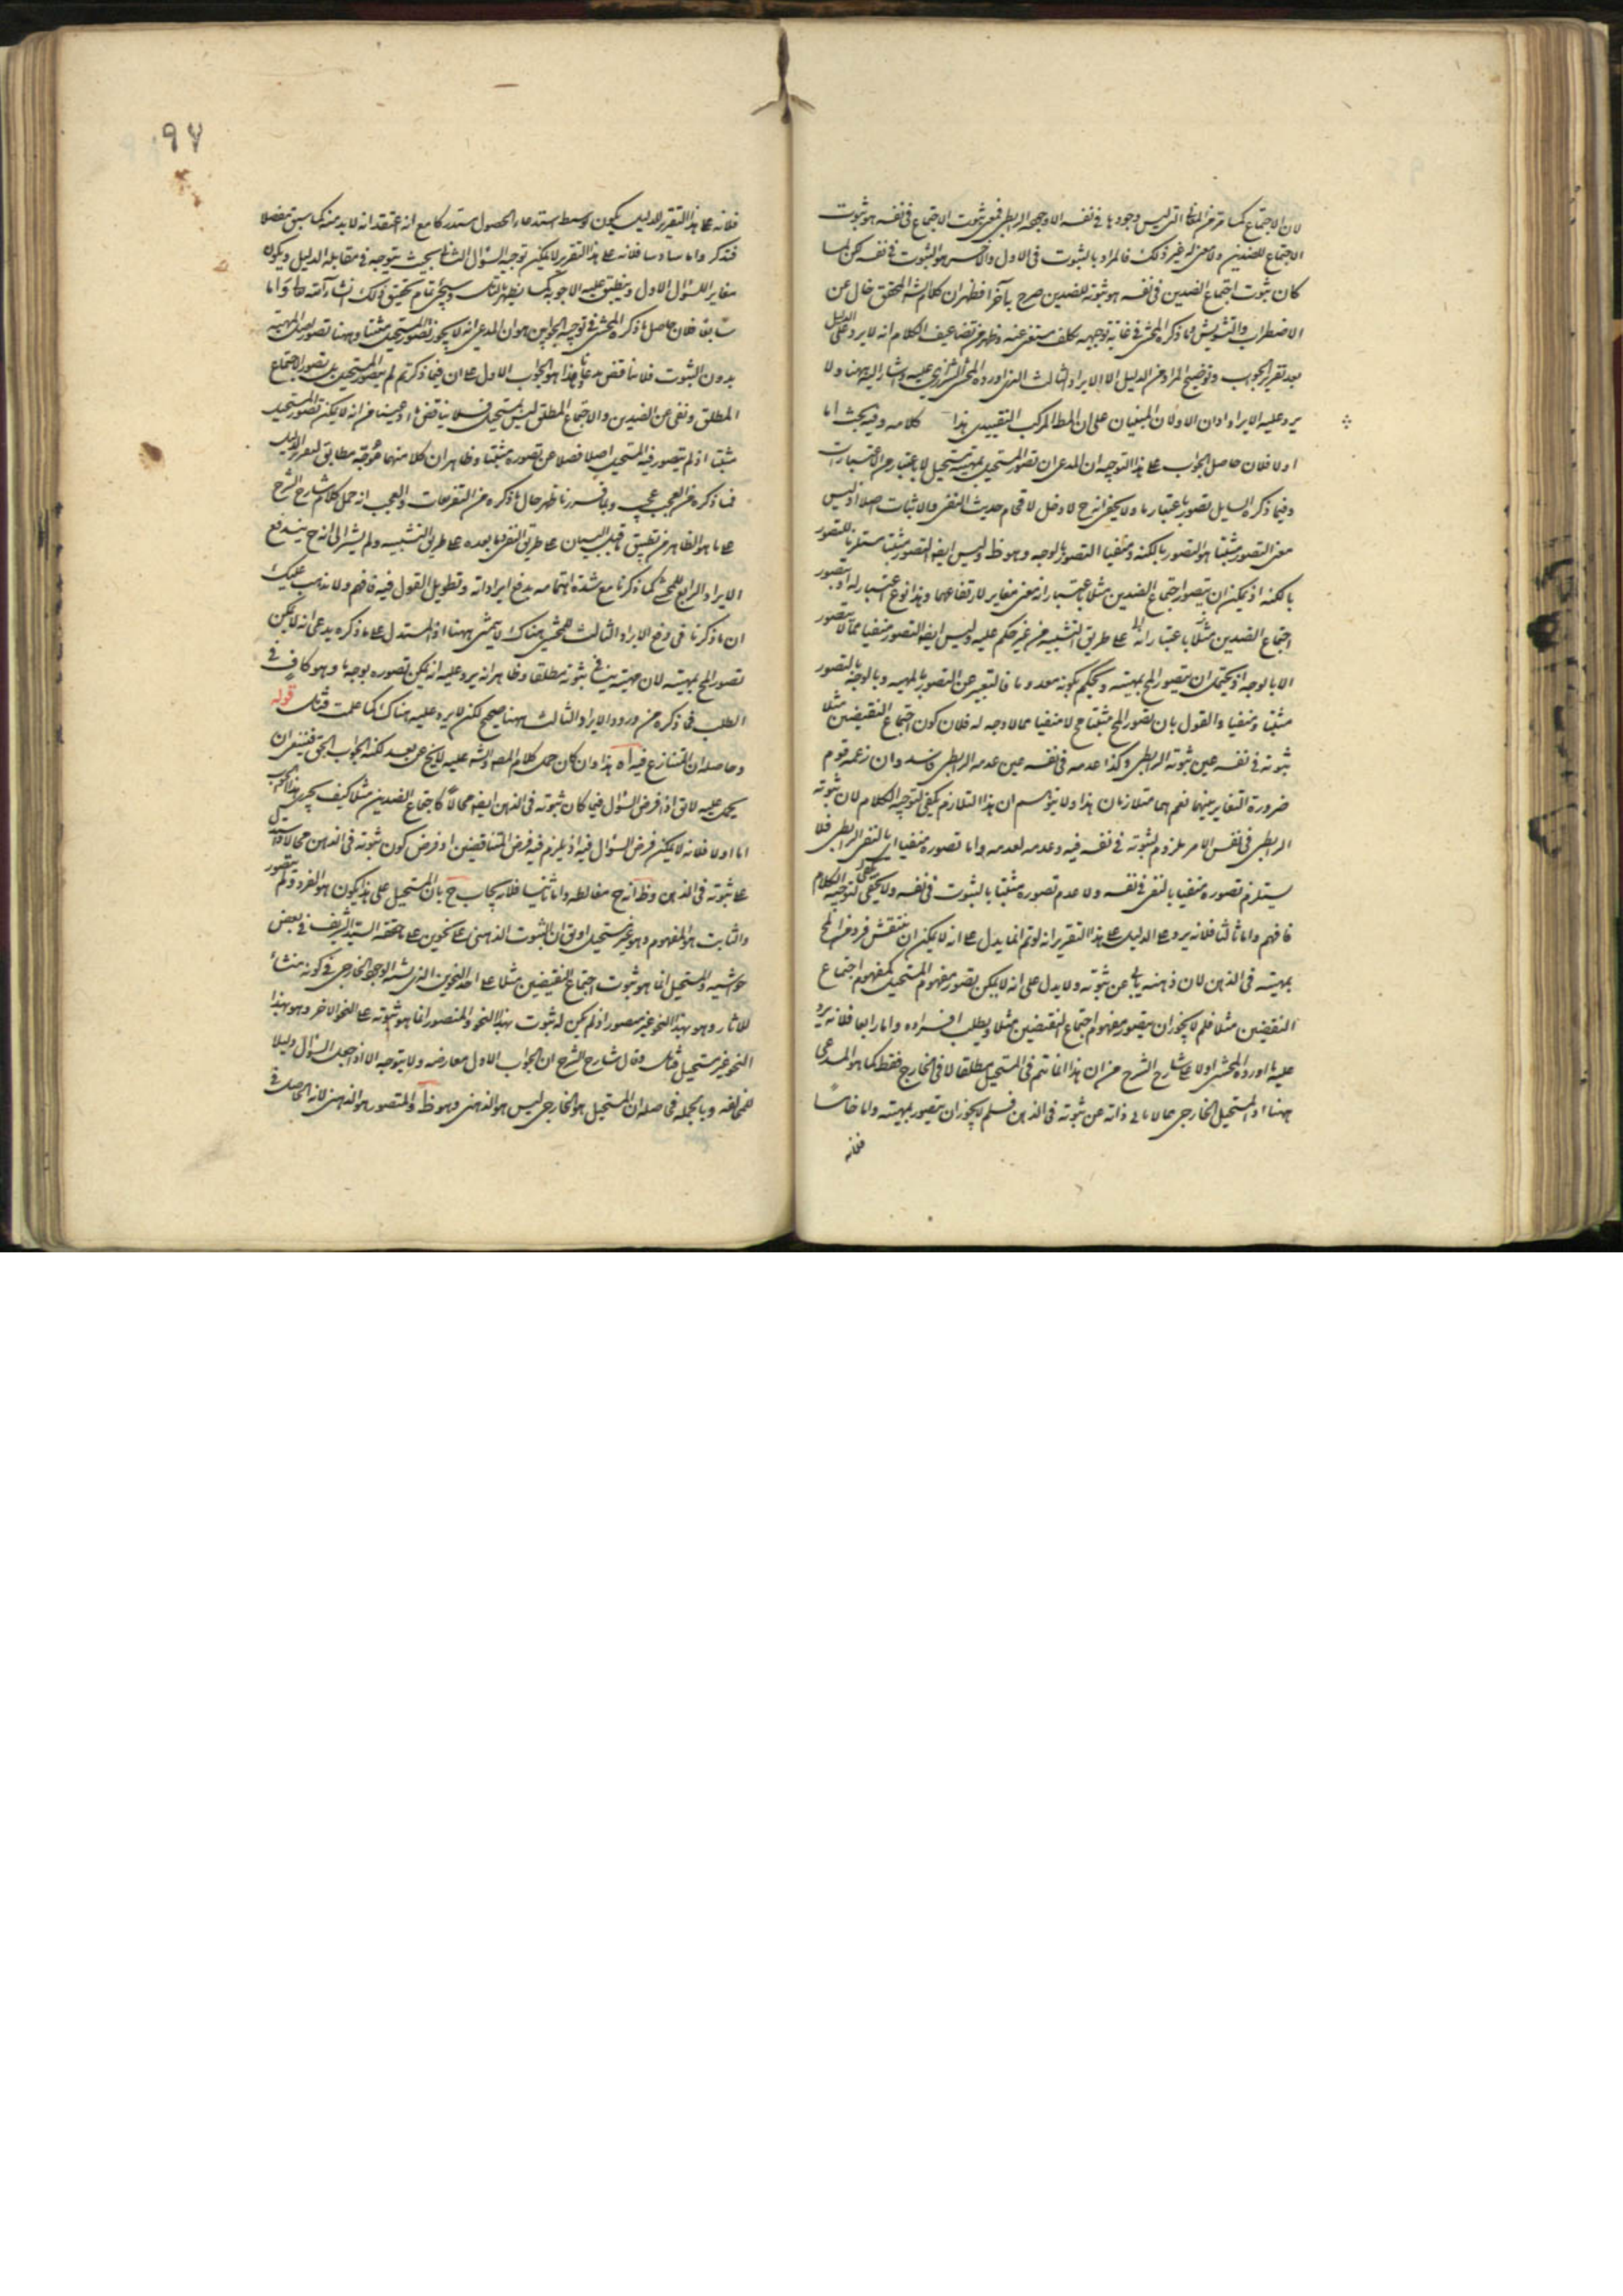 لان الاجتماع كما مر من المعانى التى ليس وجودها فى نفسه الا وجوده الرابطى فمعنى ثبوت الاجتماع فى نفسه هو ثبوت
الاجتماع للضدين ولا معنى له غير ذلك فالمراد بالثبوت فى الاول والآخر هو الثبوت فى نفسه لكن لما
كان ثبوت اجتماع الضدين فى نفسه هو ثبوته للضدين صرح بآخرا فظهر ان كلام الشه المحقق خال عن
الاضطراب والتشويش وما ذكره المحشى فى غاية توجيهه تكلف مستغنى عنه وظهر من تضاعيف الكلام انه لا يرد على الدليل
بعد تقرير الجواب وتوضيح المراد من الدليل الا الايراد الثالث الذى اورده المحشى الشيرازى عليه واشار اليه ههنا ولا
يرد عليه الايرادان الاولان المبنيان على ان المط المركب التقييدى هذا كلامه وفيه بحث اما
اولا فلان حاصل الجواب على هذا التوجيه ان المدعى ان تصور المستحيل بمهيته مستحيل لا باعتبار من الاعتبارات
وفيما ذكره السايل تصور باعتبار ما ولا يخفى انه ح لا دخل لاقحام حديث النفى والاثبات اصلا اذ ليس
معنى التصور مثبتا هو التصور بالكنه ومنفيا التصور بالوجه وهو ظ وليس ايضا التصور مثبتا مستلزما للتصور
بالكنه اذ يمكن ان يتصور اجتماع الضدين مثلا باعتبار انه معنى مغاير لارتفاعهما وهذا نوع اعتبار له او يتصور
اجتماع الضدين مثلا باعتبار انه على طريق التشبيه من غير حكم عليه وليس ايضا التصور منفيا مما لا يتصور
الا بالوجه اذ يحتمل ان يتصور المح بمهيته ويحكم بكونه معدوما فالتعبير عن التصور بالمهيه وبالوجه بالتصور
مثبتا ومنفيا والقول بان تصور المح مثبتا مح لا منفيا مما لا وجه له فلان كون اجتماع النقيضين مثلا
ثبوته فى نفسه عين ثبوته الرابطى وكذا عدمه فى نفسه عين عدمه الرابطى فاسد وان زعمه قوم
ضرورة التغاير بينهما نعم هما متلازمان هذا ولا يتوهم ان هذا التلازم يكفى لتوجيه الكلام لان ثبوته
الرابطى فى نفس الامر ملزوم لثبوته فى نفسه فيه وعدمه لعدمه واما تصوره منفيا اى بالنفى الرابطى فلا
يستلزم تصوره منفيا بالنفى فى نفسه ولا عدم تصوره مثبتا بالثبوت فى نفسه ولا يكفى لتوجيه الكلام
فافهم واما ثالثا فلانه يرد على الدليل على هذا التقرير انه لو تم انما يدل على انه لا يمكن ان ينتقش فرد من المح
بمهيته فى الذهن لان ذهنه يابى عن ثبوته ولا يدل على انه لا يمكن تصور مفهوم المستحيل كمفهوم اجتماع
النقيضين مثلا فلم لا يجوز ان يتصور مفهوم اجتماع النقيضين مثلا ويطلب افراده واما رابعا فلانه يرد
عليه ما اورده المحشى اولا على شارح الشرح من ان هذا انما تتم فى المستحيل مطلقا لا فى الخارج فقط كما هو المدعى
ههنا اذ المستحيل الخارجى مما لا يابى ذاته عن ثبوته فى الذهن فلم لا يجوز ان يتصور بمهيته واما خامسا
فلانه
٩٧
فلانه على هذا التقرير للدليل يكون توسيط استدعاء الحصول مستدركا مع انه اعتقد انه لا بد منه كما سبق مفصلا
فتذكر واما سادسا فلانه على هذا التقرير لا يمكن توجيه السؤال الثانى بحيث يتوجه فى مقابلة الدليل ويكون
مغاير للسؤال الاول وينطبق عليه الاجوبه كما يظهر بالتأمل وسيجئ تمام تحقيق ذلك انشاء الله تعالى واما
سابعا فلان حاصل ما ذكره المحشى فى توجيه الجوابين هو ان المدعى انه لا يجوز تصور المستحيل مثبتا وههنا تصور اصل المهيه
بدون الثبوت فلا يناقض مدعانا وهذا هو الجواب الاول على ان فيما ذكرتم لم يتصور المستحيل بل تصور الاجتماع
المطلق ونفى عن الضدين والاجتماع المطلق ليس بمستحيل فلا يناقض ما ادعينا من انه لا يمكن تصور المستحيل
مثبتا اذ لم يتصور فيه المستحيل اصلا فضلا عن تصوره مثبتا وظاهر ان كلا منهما موجه مطابق لتقرير الدليل
فما ذكره من العجب عجيب وبما قررنا ظهر حال ما ذكره من التفريعات والعجب انه حمل كلام شارح الشرح
على ما هو الظاهر من تعليق ما قبل البيان على طريق النفى بما بعده على طريق التشبيه ولم يشر الى انه ح يندفع
الايراد الرابع للمحشى كما ذكرنا مع شدة اهتمامه بدفع ايراداته وتطويل القول فيه فافهم ولا يذهب عليك
ان ما ذكرنا فى دفع الايراد الثالث للمحشى هناك لا يتمشى ههنا اذ المستدل على ما ذكره يدعى انه لا يمكن
تصور المح بمهيته لان مهيته ينافى ثبوته مطلقا وظاهر انه يرد عليه انه يمكن تصوره بوجه ما وهو كاف فى
الطلب فما ذكره من ورود الايراد الثالث ههنا صحيح لكن لا يرد عليه هناك كما علمت فتأمل قوله
وحاصله ان المتنازع فيه اه هذا وان كان حمل كلام المصه والشه عليه لا يخ عن بعد لكنه الجواب الحق فينبغى ان
يحمل عليه لا يق اذا فرض السؤال فيما كان ثبوته فى الذهن ايضا محالا كاجتماع الضدين مثلا كيف يجرى هذا الجواب
اما اولا فلانه لا يمكن فرض السؤال فيه اذ يلزم فيه فرض المتناقضين اذ فرض كون ثبوته فى الذهن محالا
على ثبوته فى الذهن وظ انه ح مغالطه واما ثانيا فلانه يجاب ح بان المستحيل على هذا يكون هو الفرد ولم يتصور
والثابت هو المفهوم وهو غير مستحيل او يق ان الثبوت الذهنى على نحوين على ما حققه السيد الشريف فى بعض
حواشيه والمستحيل انما هو ثبوت اجتماع النقيضين مثلا على احد النحوين الذى يشبه الوجود الخارجى فى كونه منشأ
للآثار وهو بهذا النحو غير متصور اذ لم يكن له ثبوت بهذا النحو والمتصور انما هو ثبوته على النحو الاخر وهو بهذا
النحو غير مستحيل فتأمل وقال شارح الشرح ان الجواب الاول معارضه ولا يتوجه الا اذا جعل السؤال دليلا
للمخالفه وبالجمله فحاصله ان المستحيل هو الخارجى ليس هو الذهنى وهو ظ والمتصور هو الذهنى لانه الحاصل فى